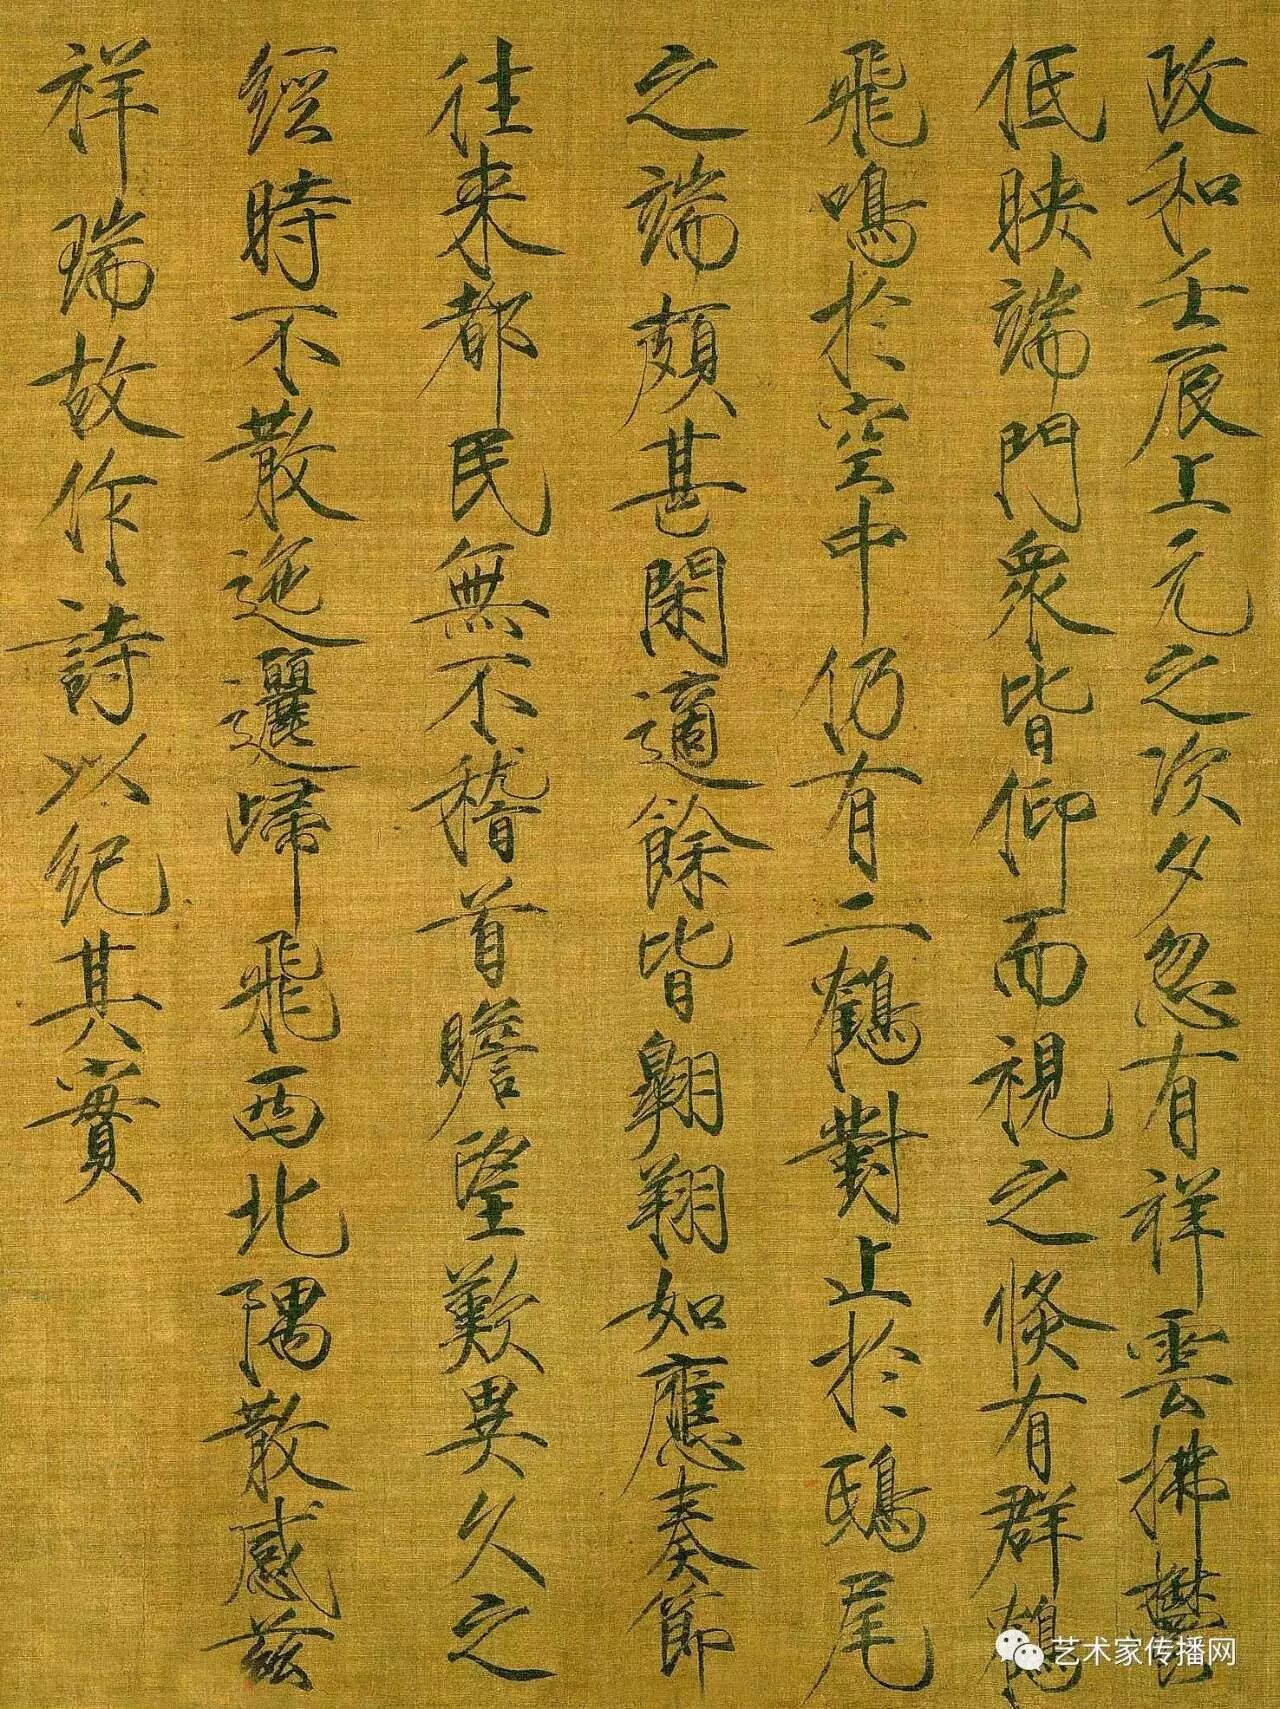 政和壬辰上元之次夕忽有祥雲拂鬱
低映端門衆皆仰而視之倏有群鶴
飛鳴於空中仍有二鶴對止於鴟尾
之端頗甚閑適餘皆翱翔如應奏節
往来都民無不稽首瞻望歎異久之
經時不散迤邐歸飛西北隅散感茲
祥瑞故作詩以紀其實
艺术家传播网